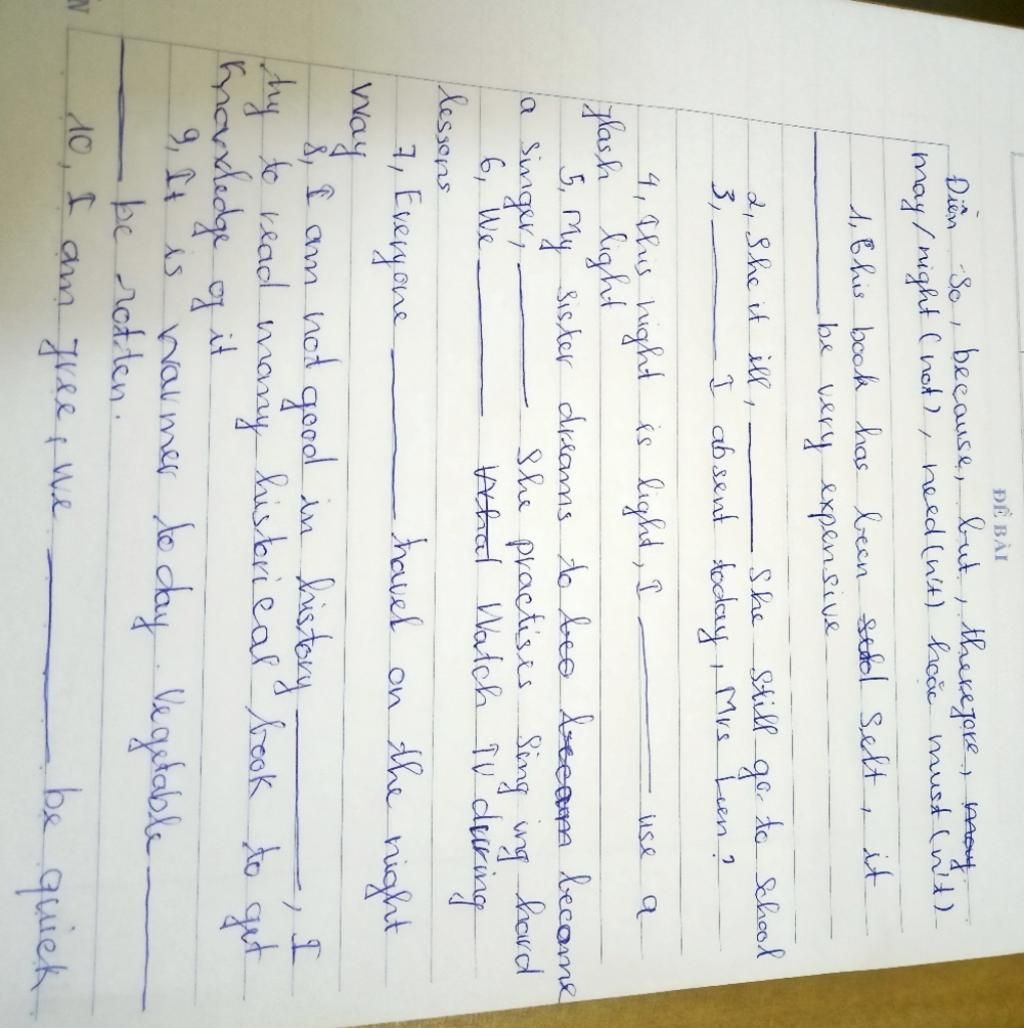 ĐỀ BÀI
Điền So, because, but, therefore, may
may/might (not), need(n't) hoặc must(n't)
1, This book has been Selt, it
be very expensive
2, She it ill, She still go to school
3, I absent today, Mrs Lien?
4, This night is light, I use a
flash light
5, My sister dreams to become
a singer, She practises Singing hard
6, We Watch TV during
lessons
7, Everyone travel on the right
way
8, I am not good in history , I
try to read many historical book to get
knowledge of it
9, It is warmer today. Vegetable
be rotten.
10, I am free, we be quick